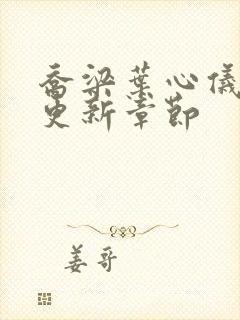 乔梁叶心仪
更新章节
姜哥